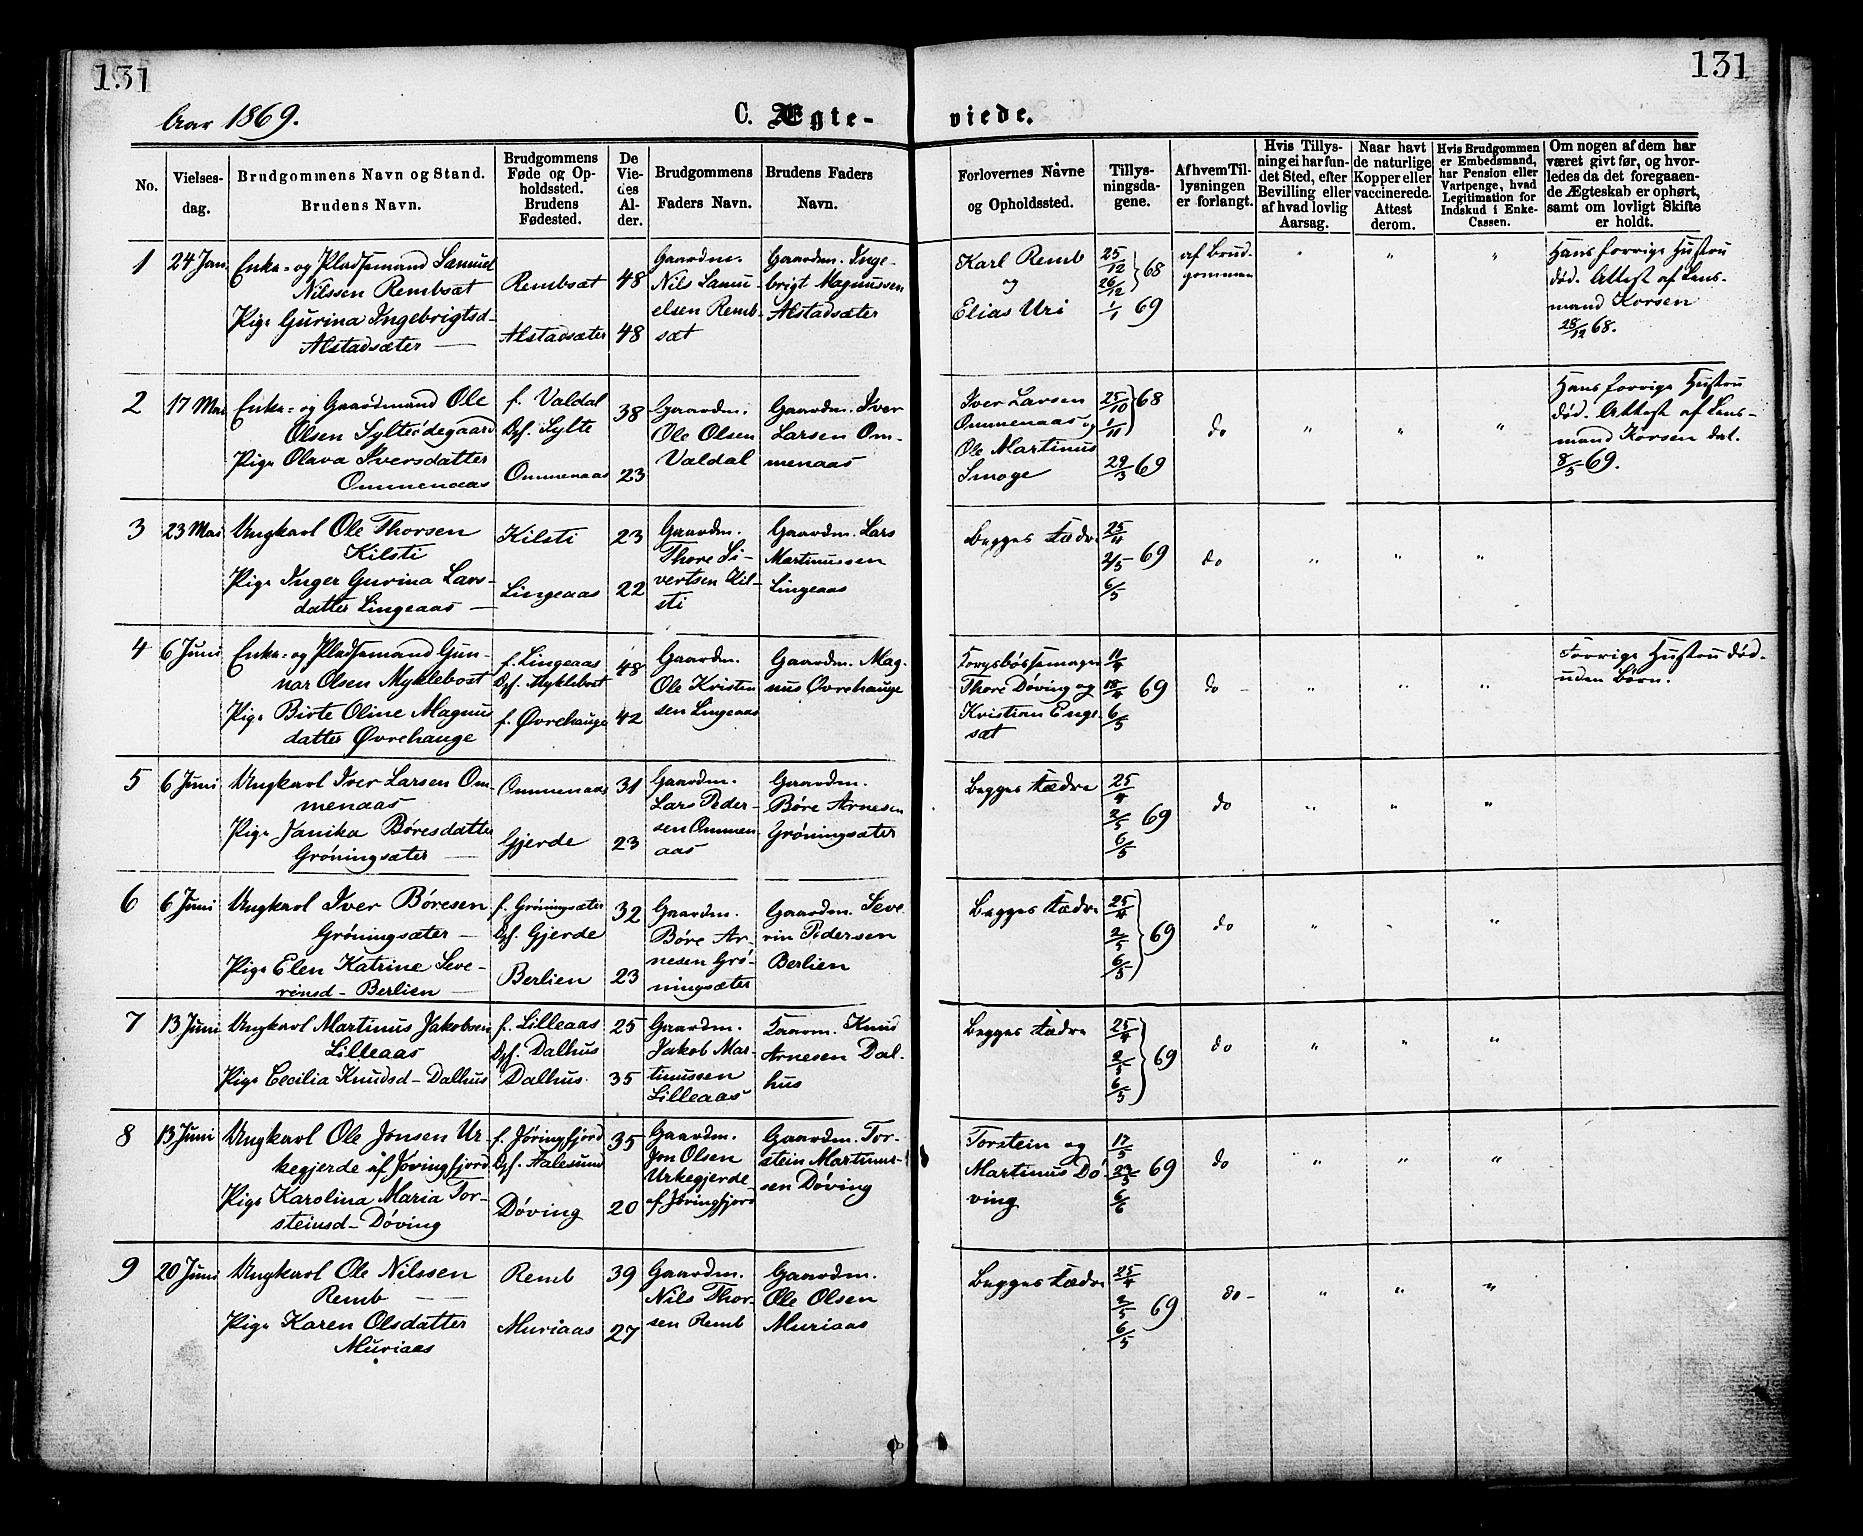 131
131
Aar 1869.
C. Ægte-
viede.
No.
Vielses-
dag.
Brudgommens Navn og Stand.
Brudens Navn.
Brudgommens
Føde og Op-
holdssted.
Brudens
Fødested.
De
Vie-
des
Al-
der.
Brudgommens
Faders Navn.
Brudens Faders
Navn.
Forlovernes Navne
og Opholdssted.
Tillys-
ningsda-
gene.
Af hvem Til-
lysningen
er forlangt.
Hvis Tillys-
ning ei har fun-
det Sted, efter
Bevilling eller
af hvad lovlig
Aarsag.
Naar havt
de naturlige
Kopper eller
vaccinerede.
Attest
derom.
Hvis Brudgommen
er Embedsmand,
har Pension eller
Vartpenge, hvad
Legitimation for
Indskud i Enke-
Cassen.
Om nogen af dem har
været givt før, og hvor-
ledes da det foregaaen-
de Ægteskab er ophørt,
samt om lovligt Skifte
er holdt.
1
24 Jan
Enke- og Pladsemand Samuel
Nilssen Rembsæt
Pige Gurina Ingebrigtsd-
Alstadsæter —
Rembsæt
Alstadsæter
48
48
Gaardm.
Nils Samu-
elsen Remb-
sæt
Gaardm. Inge-
brigt Magnussen
Alstadsæter
Karl Remb
og
Elias Uri
25/12
26/12 } 68
1/1 69
af Brud-
gommen
"
"
"
Hans forrige Hustru
død. Attest af Lens-
mand Korsen
28/12 68.
2
17 Mai
Enke- og Gaardmand Ole
Olsen Sylteødegaard
Pige Olava Iversdatter
Ommenaas
f. Valdal
Opf. Sylte
Ommenaas
38
23
Gaardm.
Ole Olsen
Valdal
Gaardm. Iver
Larsen Om-
menaas
Iver Larsen
Ommenaas og
Ole Martinus
Smoge
25/10
1/11 } 68
29/3 69
do
"
"
"
Hans forrige Hustru
død. Attest af Lens-
mand Korsen dat.
8/5 69.
3
23 Mai
Ungkarl Ole Thorsen
Kilsti
Pige Inger Gurina Lars-
datter Lingeaas —
Kilsti
Lingeaas
23
22
Gaardm.
Thore Si-
vertsen Kil-
sti
Gaardm. Lars
Martinussen
Lingeaas
Begges Fædre
25/4
2/5 69
6/5
do
"
"
"
4
6 Juni
Enke- og Pladsemand Gun-
nar Olsen Myklebost
Pige Birte Oline Magnus
datter Øvrehauge
f. Lingeaas
Opf. Myklebost
f. Øvrehauge
48
42
Gaardm.
Ole Kristen
sen Lingeaas
Gaardm. Mag-
nus Øvrehauge
Thore Døving og
Kristian Engs-
sæt
11/4
18/4 69
6/5
do -
"
"
"
Forrige Hustru død.
uden Børn.
5
6 Juni
Ungkarl Iver Larsen Om
menaas
Pige Janika Børesdatter
Grøningsæter —
Ommenaas
Gjerde
31
23
Gaardm.
Lars Peder-
sen Ommen-
aas
Gaardm.
Børe Arnesen
Grøningsæter
Begges Fædre
25/4
2/5 69
6/5
do
"
"
"
6
6 Juni
Ungkarl Iver Børesen
Grøningsæter —
Pige Elen Katrine Seve-
rinsd- Berlien —
f. Grøningsæter
Opf. Gjerde
Berlien
32
23
Gaardm.
Børe Ar-
nesen Grø-
ningsæter
Gaardm. Seve
rin Pedersen
Berlien
Begges Fædre
25/4
2/5 } 69
6/5
do
"
"
"
7
13 Juni
Ungkarl Martinus Jakobsen
Lilleaas
Pige Cecilia Knudsd- Dalhus
f. Lilleaas
Opf. Dalhus
Dalhus.
25
35
Gaardm.
Jakob Mar-
tinussen
Lilleaas
Gaardm. Knud
Arnesen Dal-
hus
Begges Fædre
25/4
2/5 } 69
6/5
do
"
"
"
8
13 Juni
Ungkarl Ole Jonsen Ur-
kegjerde af Jøringfjord
Pige Karolina Maria Tor-
steinsd- Døving
f. Jøringfjord
Opf. Aalesund
Døving
35
20
Gaardm.
Jon Olsen
Urkegjerde
af Jøringfjord
Gaardm. Tor-
stein Martinus-
sen Døving
Torstein og
Martinus Dø
ving
17/5
23/5 69
6/6
do
"
"
"
9
20 Juni
Ungkarl Ole Nilssen
Remb —
Pige Karen Olsdatter
Muriaas
Remb
Muriaas
39
27
Gaardm.
Nils Thor-
sen Remb
Gaardm.
Ole Olsen
Muriaas
Begges Fædre
25/4
2/5 69
6/5
do -
"
"
"